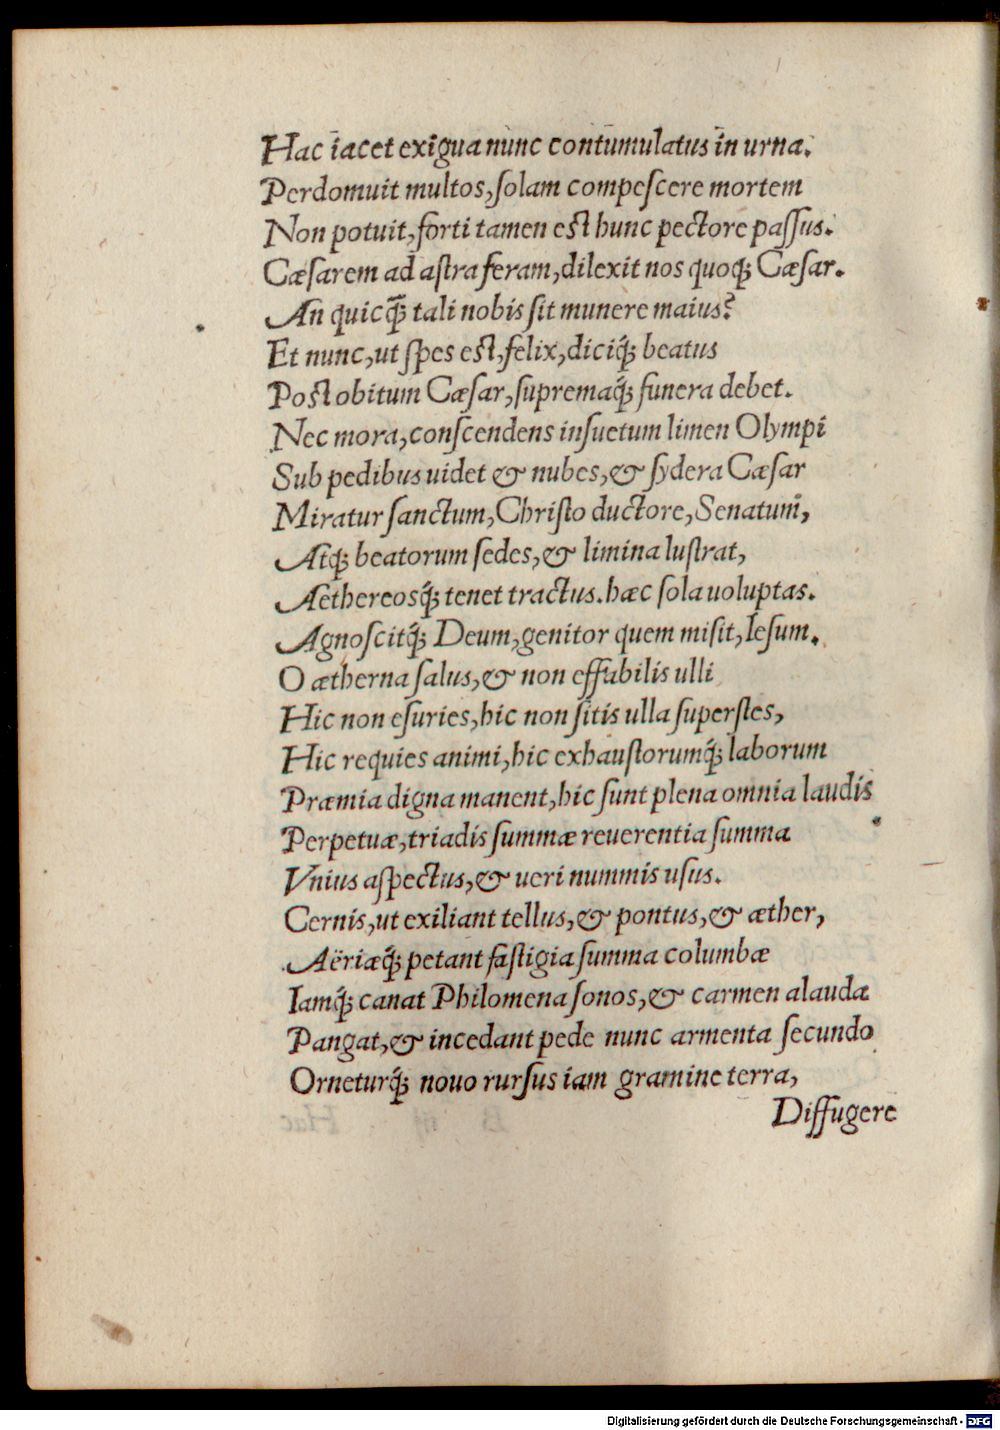 Hac iacet exigua nunc contumulatus in urna.
Perdomuit multos, solam compescere mortem
Non potuit, forti tamen est hunc pectore passus.
Cæsarem ad astra feram, dilexit nos quoq; Cæsar.
An quicq̃ꝫ tali nobis sit munere maius?
Et nunc, ut spes est, felix, diciq́; beatus
Post obitum Cæsar, supremaq́; funera debet.
Nec mora, conscendens insuetum limen Olympi
Sub pedibus uidet & nubes, & sydera Cæsar
Miratur sanctum, Christo ductore, Senatum,
Atq; beatorum sedes, & limina lustrat,
Aethereosq́; tenet tractus. hæc sola uoluptas.
Agnoscitq́; Deum, genitor quem misit, Iesum.
O ætherna salus, & non effabilis ulli
Hic non esuries, hic non sitis ulla superstes,
Hic requies animi, hic exhaustorumq́; laborum
Præmia digna manent, hic sunt plena omnia laudis
Perpetuæ, triadis summæ reuerentia summa
Vnius aspectus, & ueri nummis usus.
Cernis, ut exiliant tellus, & pontus, & æther,
Aëriæq́; petant fastigia summa columbæ
Iamq́; canat Philomena sonos, & carmen alauda
Pangat, & incedant pede nunc armenta secundo
Orneturq́; nouo rursus iam gramine terra,
Diffugere
Digitalisierung gefördert durch die Deutsche Forschungsgemeinschaft - DFG